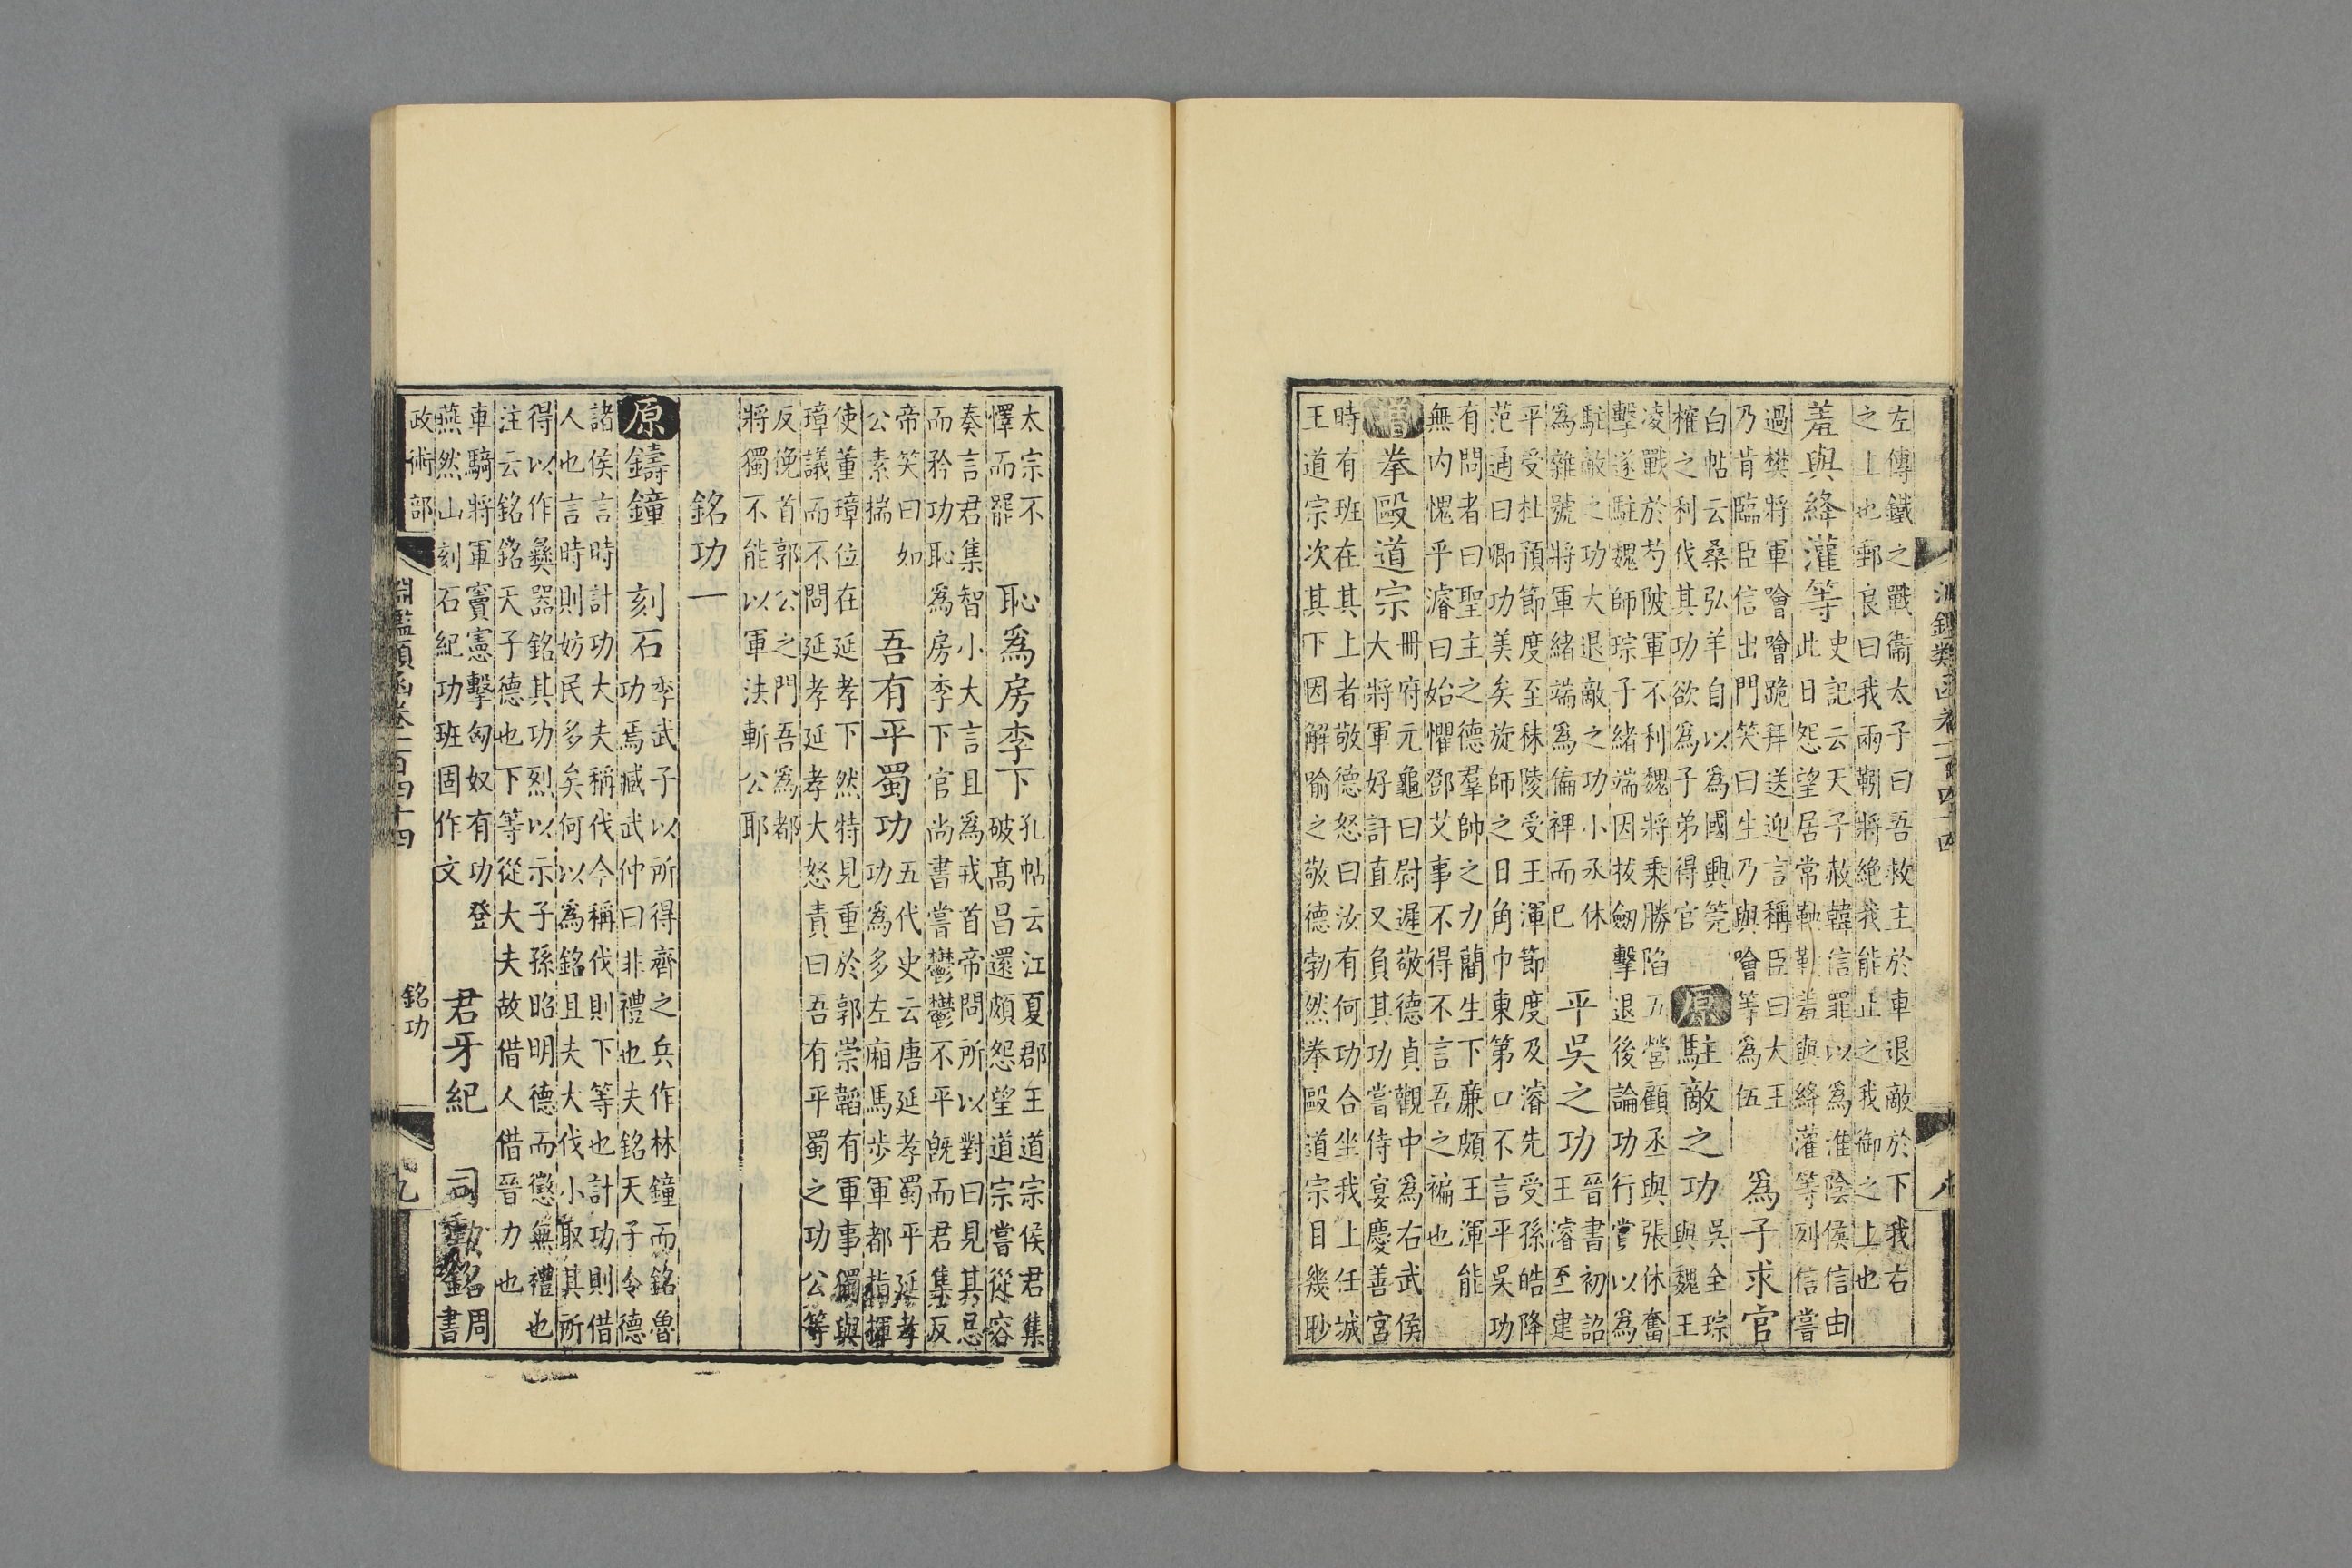 左傳鐵之戰衞太子曰吾救主於車退敵於下我右
之上也郵良曰我兩靷將絶我能止之我御之上也
羞與絳灌等 史記云天子赦韓信罪以爲淮陰侯信由
此日怨望居常鞅鞅羞與絳灌等列信嘗
過樊將軍噲噲跪拜送迎言稱臣曰大王
乃肯臨臣信出門笑曰生乃與噲等爲伍 爲子求官
白帖云桑弘羊自以爲國興筦
榷之利伐其功欲爲子弟得官 原 駐敵之功 吳全琮
與魏王
凌戰於芍陂軍不利魏將乗勝陷五營顧丞與張休奮
擊遂駐魏師琮子緒端因拔劒擊退後論功行嘗以爲
駐敵之功大退敵之功小丞休
爲雜號將軍緒端爲偏裨而巳 平吳之功 晉書初詔
王濬至建
平受杜預節度至秣陵受王渾節度及濬先受孫皓降
范通曰卿功美矣旋師之日角巾東第口不言平吳功
有問者曰聖主之德羣帥之力藺生下廉頗王渾能
無内愧乎濬曰始懼鄧艾事不得不言吾之褊也
增 拳毆道宗 冊府元龜曰尉遲敬德貞觀中爲右武侯
大將軍好訐直又負其功嘗侍宴慶善宮
時有班在其上者敬德怒曰汝有何功合坐我上任城
王道宗次其下因解喻之敬德勃然拳毆道宗目幾眇
太宗不
懌而罷 恥爲房李下 孔帖云江夏郡王道宗侯君集
破高昌還頗怨望道宗嘗從容
奏言君集智小大言且爲戎首帝問所以對曰見其忌
而矜功恥爲房李下官尚書嘗鬱鬱不平既而君集反
帝笑曰如
公素揣 吾有平蜀功 五代史云唐延孝蜀平延孝
功爲多左廂馬步軍都指揮
使董璋位在延孝下然特見重於郭崇韜有軍事獨與
璋議而不問延孝延孝大怒責曰吾有平蜀之功公等
反俛首郭公之門吾爲都
將獨不能以軍法斬公耶
銘功一
原 鑄鐘 刻石 季武子以所得齊之兵作林鐘而銘魯
功焉臧武仲曰非禮也夫銘天子令德
諸侯言時計功大夫稱伐今稱伐則下等也計功則借
人也言時則妨民多矣何以爲銘且夫大伐小取其所
得以作彝器銘其功烈以示子孫昭明德而懲無禮也
注云銘銘天子德也下等從大夫故借人借晉力也
車騎將軍竇憲擊匈奴有功登
燕然山刻石紀功班固作文 君牙紀 司勳銘 周
書
政術部 淵鑑類函卷一百四十四 銘功 九